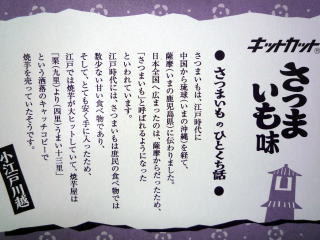 キットカット
さつま
いも味
● さつまいものひとくち話 ●
さつまいもは、江戸時代に
中国から琉球（いまの沖縄）を経て、
薩摩（いまの鹿児島県）に伝わりました。
日本全国へ広まったのは、薩摩からだったため、
「さつまいも」と呼ばれるようになった
といわれています。
江戸時代には、さつまいもは庶民の食べ物では
数少ない甘い食べ物であり、
そして、とても安く手に入ったため、
江戸では焼芋が大ヒットしていて、焼芋屋は
「栗（九里）より（四里）うまい十三里」
という洒落のキャッチコピーで
焼芋を売っていたそうです。
小江戸川越